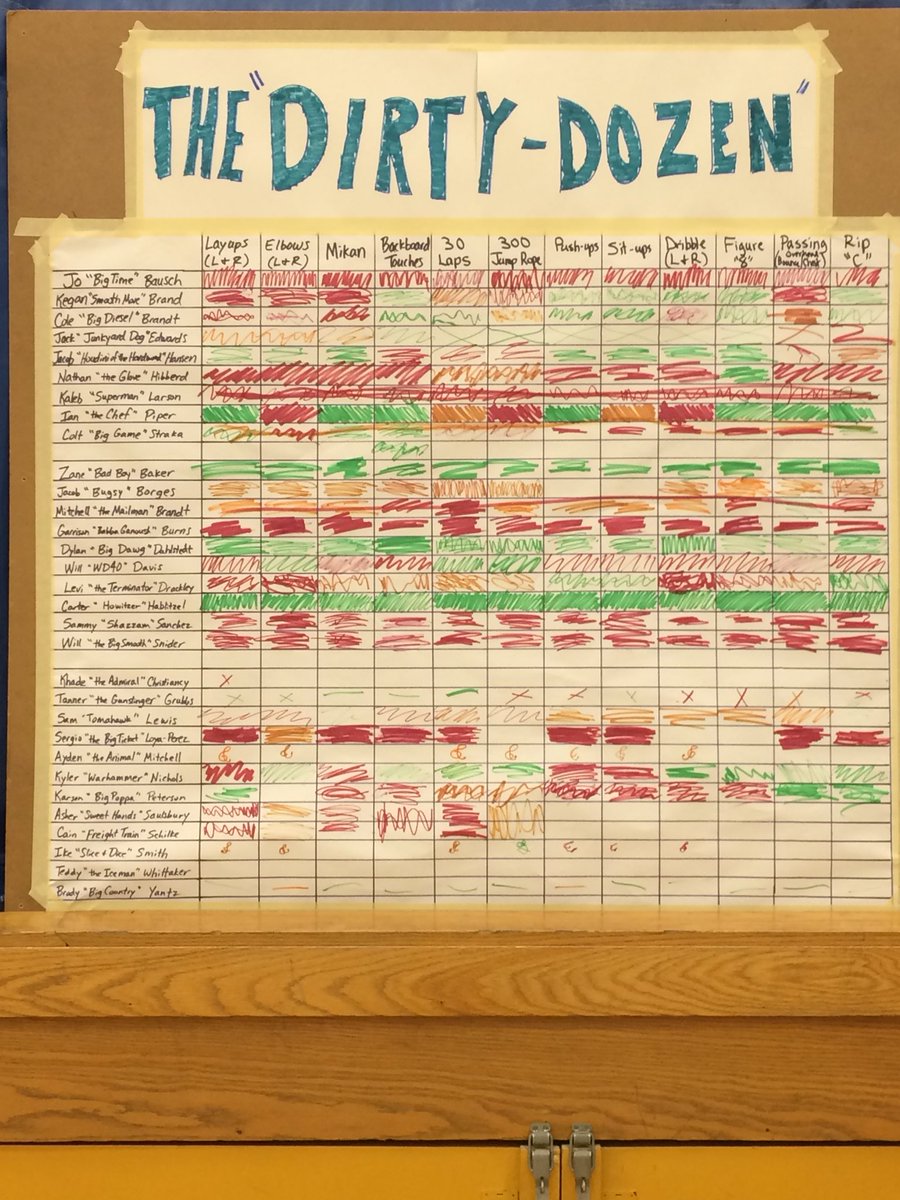 THE "DIRTY-DOZEN"
Layups (L+R) Elbows (L+R) Mikan Backboard Touches 30 Laps 300 Jump Rope Push-ups Sit-ups Dribble (L+R) Figure "8" Passing Rip "C"
Jo "Big Time" Bausch
Kegan "Smooth Move" Brand
Cole "Big Diesel" Brandt
Jack "Junkyard Dog" Edwards
Jacob "Houdini of the Hardwood" Hansen
Nathan "the Glove" Hibberd
Kaleb "Superman" Larson
Ian "the Chef" Piper
Colt "Big Game" Straka
Zane "Bad Boy" Baker
Jacob "Bugsy" Borges
Mitchell "the Mailman" Brandt
Garrison "Bubba Ganoush" Burns
Dylan "Big Dawg" Dahlstedt
Will "WD40" Davis
Levi "the Terminator" Drackley
Carter "Howitzer" Hablitzel
Sammy "Shazzam" Sanchez
Will "the Big Smooth" Snider
Khade "the Admiral" Christiancy
Tanner "the Gunslinger" Grubbs
Sam "Tomahawk" Lewis
Sergio "the Big Ticket" Loya-Perez
Ayden "the Animal" Mitchell
Kyler "Warhammer" Nichols
Karson "Big Poppa" Peterson
Asher "Sweet Hands" Saulsbury
Cain "Freight Train" Schilke
Ike "Slice + Dice" Smith
Teddy "the Iceman" Whittaker
Brody "Big Country" Yantz